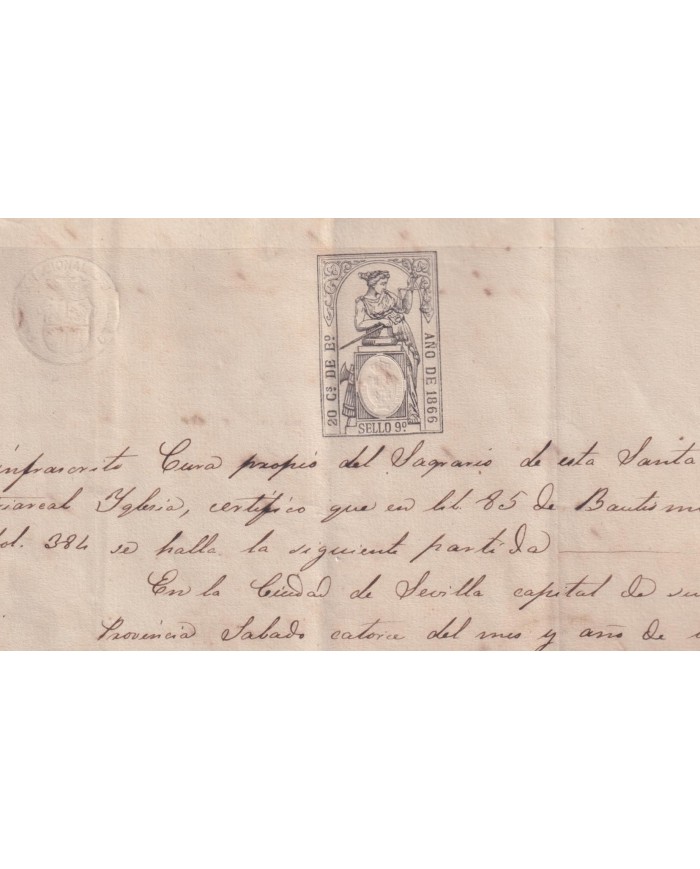 20 Cs DE Eº
AÑO DE 1866
SELLO 9º
infrascrito Cura propio del Sagrario de esta Santa
iarcal Yglesia, certifico que en lib. 85 de Bautism
fol. 384 se halla la siguiente partida
En la Ciudad de Sevilla capital de su
Provincia Sabado catorce del mes y año de